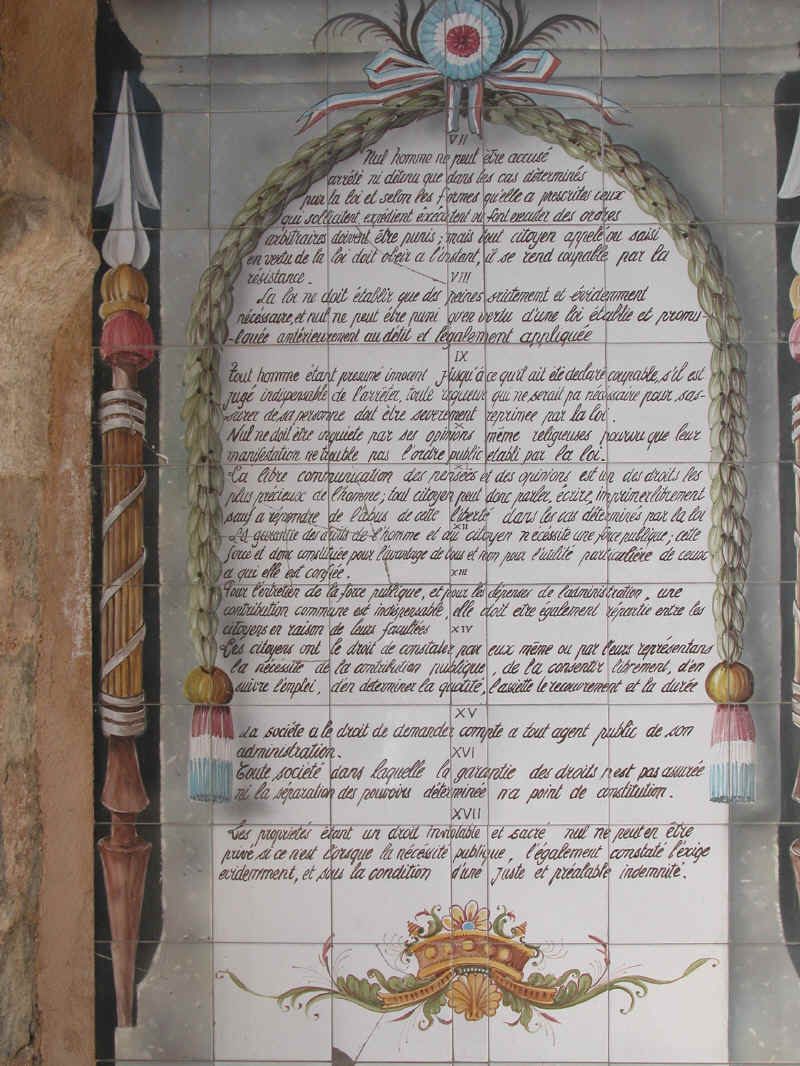 VII
Nul homme ne peut être accusé
arrêté ni détenu que dans les cas déterminés
par la loi et selon les formes qu'elle a prescrites ceux
qui sollicitent, expédient éxécutent ou font executer des ordres
arbitraires doivent être punis; mais tout citoyen appelé ou saisi
en vertu de la loi doit obeir a l'instant, il se rend coupable par la
résistance.
VIII
La loi ne doit établir que des peines strictement et évidemment
nécessaire, et nul ne peut être puni qu'en vertu d'une loi établie et promu-
-lguée antérieurement au délit et légalement appliquée
IX
Tout homme étant presumé innocent jusqu'à ce qu'il ait été declaré coupable, s'il est
jugé indispensable de l'arrêter, toute rigueur qui ne serait pa nécéssaire pour sas-
-surer de sa personne doit être severement reprimee par la loi.
X
Nul ne doit être inquieté par ses opinions même religieuses pourvu que leur
manifestation ne trouble pas l'ordre public établi par la loi.
XI
La libre communication des pensées et des opinions est un des droits les
plus précieux de l'homme; tout citoyen peut donc parler, écrire, imprimer librement
sauf a répondre de l'abus de cette liberté dans les cas déterminés par la loi
XII
La garantie des droits de l'homme et du citoyen necéssite une force publique; cette
force et donc constituée pour l'avantage de tous et non pour l'utilité particulière de ceux
a qui elle est confiée.
XIII
Pour l'entretien de la force publique, et pour les dépenses de l'administration, une
contribution commune est indépensable, elle doit être également répartie entre les
citoyens en raison de leurs facultées
XIV
Les citoyens ont le droit de constater par eux même ou par leurs représentans
la nécéssité de la contribution publique, de la consentir librement, d'en
suivre l'emploi, d'en déterminer la quotité, l'assiète le recouvrement et la durée
XV
La société a le droit de demander compte a tout agent public de son
administration.
XVI
Toute société dans laquelle la garantie des droits n'est pas assurée
ni la séparation des pouvoirs déterminée n'a point de constitution.
XVII
Les propriétés étant un droit inviolable et sacré nul ne peut en être
privé, si ce n'est lorsque la nécéssité publique, légalement constaté l'exige
evidemment, et sous la condition d'une juste et préalable indemnité.